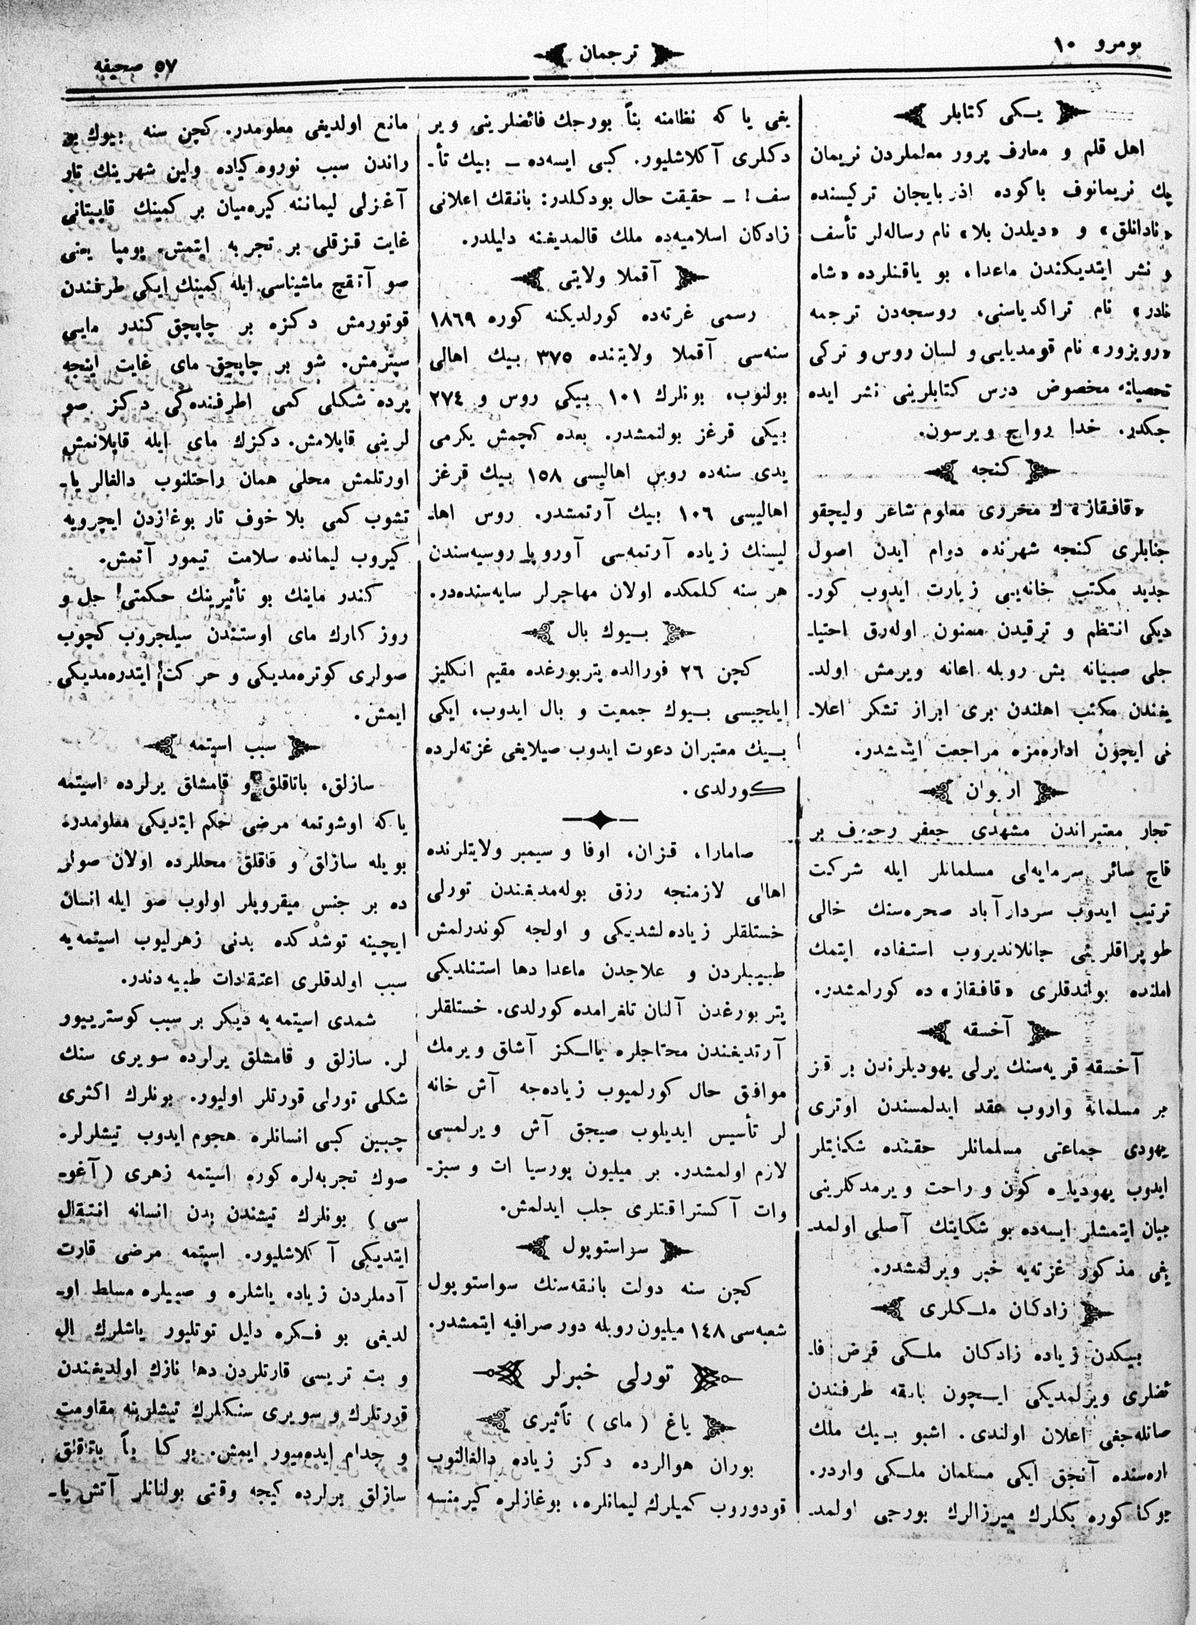 نومرو ١٠
ترجمان
٥٧ صحيفه
يـكى كتابلر
اهل قلم و معارف پرور معلملردن نريمان
بك نريمانوف باكوده اذربايجان تركيسنده
«نادانلق» و «ديلدن بلا» نام رساله‌لر تأسف
و نشر ايتديكندن ماعدا، بو ياقنلرده «شاه
نادر» نام تراكدياسنى، روسجه‌دن ترجمه
«رويزور» نام قومديايى و لسان روس و تركى
تحصيلنه مخصوص درس كتابلرينى نشر ايده
جكدر. خدا رواج ويرسون.
كنجه
«قافقاز»ك محررى معلوم شاعر وليچقو
جنابلرى كنجه شهرنده دوام ايدن اصول
جديد مكتب خانه‌يى زيارت ايدوب كور-
ديكى انتظم و ترقيدن ممنون اوله‌رق احتيا-
جلى صبيانه بش روبله اعانه ويرمش اولد-
يغندن مكتب اهلندن برى ابراز تشكر اعلا-
نى ايچون اداره‌مزه مراجعت ايتمشدر.
اريوان
تجار معتبراندن مشهدى جعفر رحيموف بر
قاچ سائر سرمايه‌لى مسلمانلر ايله شركت
ترتيب ايدوب سردارآباد صحره‌سنك خالى
طوپراقلرينى جانلانديروب استفاده ايتمك
املنده بولندقلرى «قافقاز» ده كورلمشدر.
آخسقه
آخسقه قريه‌سنك يرلى يهوديلرندن بر قز
بر مسلمانه واروب عقد ايدلمسندن اوترى
يهودى جماعتى مسلمانلر حقنده شكايتلر
ايدوب يهوديلره كون و راحت ويرمدكلرينى
بيان ايتمشلر ايسه‌ده بو شكايتك آصلى اولمد-
يغى مذكور غزته‌يه خبر ويرلمشدر.
زادكان ملـكلرى
بيكدن زياده زادكان ملـكى قرض فا-
ئضلرى ويرلمديكى ايـچون بانقه طرفندن
صاتله‌جغى اعلان اولندى. اشبو بـيك ملك
اره‌سنده آنجق ايكى مسلمان ملـكى واردر.
بوكا كوره بكلرك ميرزالرك بورجى اولمد-
يغى يا كه نظامنه بناً بورجك فائضلرينى وير
دكلرى آكلاشليور. كبى ايسه‌ده ــ بيك تأ-
سف! ــ حقيقت حال بودكلدر: بانقك اعلانى
زادكان اسلاميه‌ده ملك قالمديغنه دليلدر.
آقملا ولايتى
رسمى غزته‌ده كورلديكنه كوره ١٨٦٩
سنه‌سى آقملا ولايتنده ٣٧٥ بيك اهالى
بولنوب، بونلرك ١٠١ بيكى روس و ٢٧٤
بيكى قرغز بولنمشدر. بعده كچمش يكرمى
يدى سنه‌ده روس اهاليسى ١٥٨ بيك قرغز
اهاليسى ١٠٦ بيك آرتمشدر. روس اها-
ليسنك زياده آرتمه‌سى آوروپا روسيه‌سندن
هر سنه كلمكده اولان مهاجرلر سايه‌سنده‌در.
بـيوك بال
كچن ٢٦ فورالده پتربورغده مقيم انكليز
ايلجيسى بـيوك جمعيت و بال ايدوب، ايكى
بـيك معتبران دعوت ايدوب صيلايغى غزته‌لرده
كورلدى.
صامارا، قزان، اوفا و سيمبر ولايتلرنده
اهالى لازمنجه رزق بوله‌مديغندن تورلى
خستلقلر زياده‌لشديكى و اولجه كوندرلمش
طبيبلردن و علاجدن ماعدا دها استنلديكى
پتربورغدن آلنان تلغرامده كورلدى. خستلقلر
آرتديغندن محتاجلره يالـكز آشلق ويرمك
موافق حال كورلميوب زياده‌جه آش خانه
لر تأسيس ايديلوب صيجق آش ويرلمسى
لازم اولمشدر. بر ميليون پورسيا ات و سبز-
وات آكستراقتلرى جلب ايدلمش.
سواستوپول
كچن سنه دولت بانقه‌سنك سواستوپول
شعبه‌سى ١٤٨ ميليون روبله دور صرافيه ايتمشدر.
تورلى خبرلر
ياغ ( ماى ) تأثيرى
بوران هوالرده دكز زياده دالغالنوب
قودوروب كميلرك ليمانلره، بوغازلره كيرمنسه
مانع اولديغى معلومدر. كچن سنه بيوك بو
راندن سبب نوروه‌كياده ولين شهرينك تار
آغزلى ليماننه كيره‌ميان بر كمينك قاپيتانى
غايت قزقلى بر تجربه ايتمش. پومپا يعنى
صو آتقچ ماشيناسى ايله كمينك ايكى طرفندن
قوتورمش دكزه بر چاپچق كندر مايى
سپترمش. شو بر چاپچق ماى غايت اينجه
پرده شكلى كمى اطرفنده‌كى دكز صو
لرينى قاپلامش. دكزك ماى ايله قاپلانمش
اورتلمش محلى همان راحتلنوب دالغالر يا-
تشوب كمى بلا خوف تار بوغازدن ايچرويه
كيروب ليمانده سلامت تيمور آتمش.
كندر ماينك بو تأثيرينك حكمتى! جل و
روزكارك ماى اوستندن سيلجروب كچوب
صولرى كوتره‌مديكى و حركت ايتدره‌مديكى
ايمش.
سبب اسيتمه
سازلق، باتاقلق و قامشلق يرلرده اسيتمه
يا كه اوشوتمه مرضى حكم ايتديكى معلومدر.
بويله سازلق و قاقلق محللرده اولان صولر
ده بر جنس ميقروبلر اولوب صو ايله انسان
ايچينه توشدكده بدنى زهرليوب اسيتمه‌يه
سبب اولدقلرى اعتقادات طبيه دندر.
شمدى اسيتمه‌يه ديكر بر سبب كوستريپور
لر. سازلق و قامشلق يرلرده سويرى سنك
شكلى تورلى قورتلر اوليور. بونلرك اكثرى
چيبين كبى انسانلره هجوم ايدوب تيشلرلر.
صوك تجربه‌لره كوره اسيتمه زهرى ( آغو-
سى) بونلرك تيشندن بدن انسانه انتقال
ايتديكى آكلاشليور. اسيتمه مرضى قارت
آدملردن زياده ياشلره و صبيلره مسلط او-
لديغى بو فـكره دليل توتليور ياشلرك ال
و بت تريسى قارتلردن دها نازك اولديغندن
قورتلرك و سويرى سنكلرك تيشلرينه مقاومت
و چدام ايده‌ميور ايمش. بوكا بناً باتاقلق
سازلق يرلرده كيجه وقتى بولنانلر آتش يا-